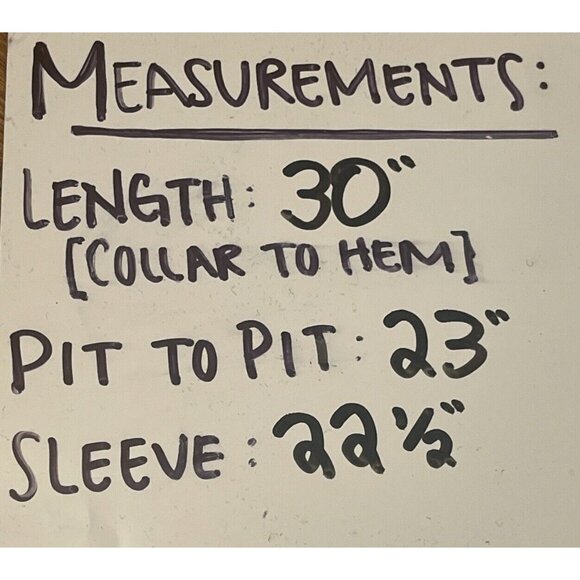 MEASUREMENTS:
LENGTH: 30"
[COLLAR TO HEM]
PIT TO PIT: 23"
SLEEVE: 22 ½"